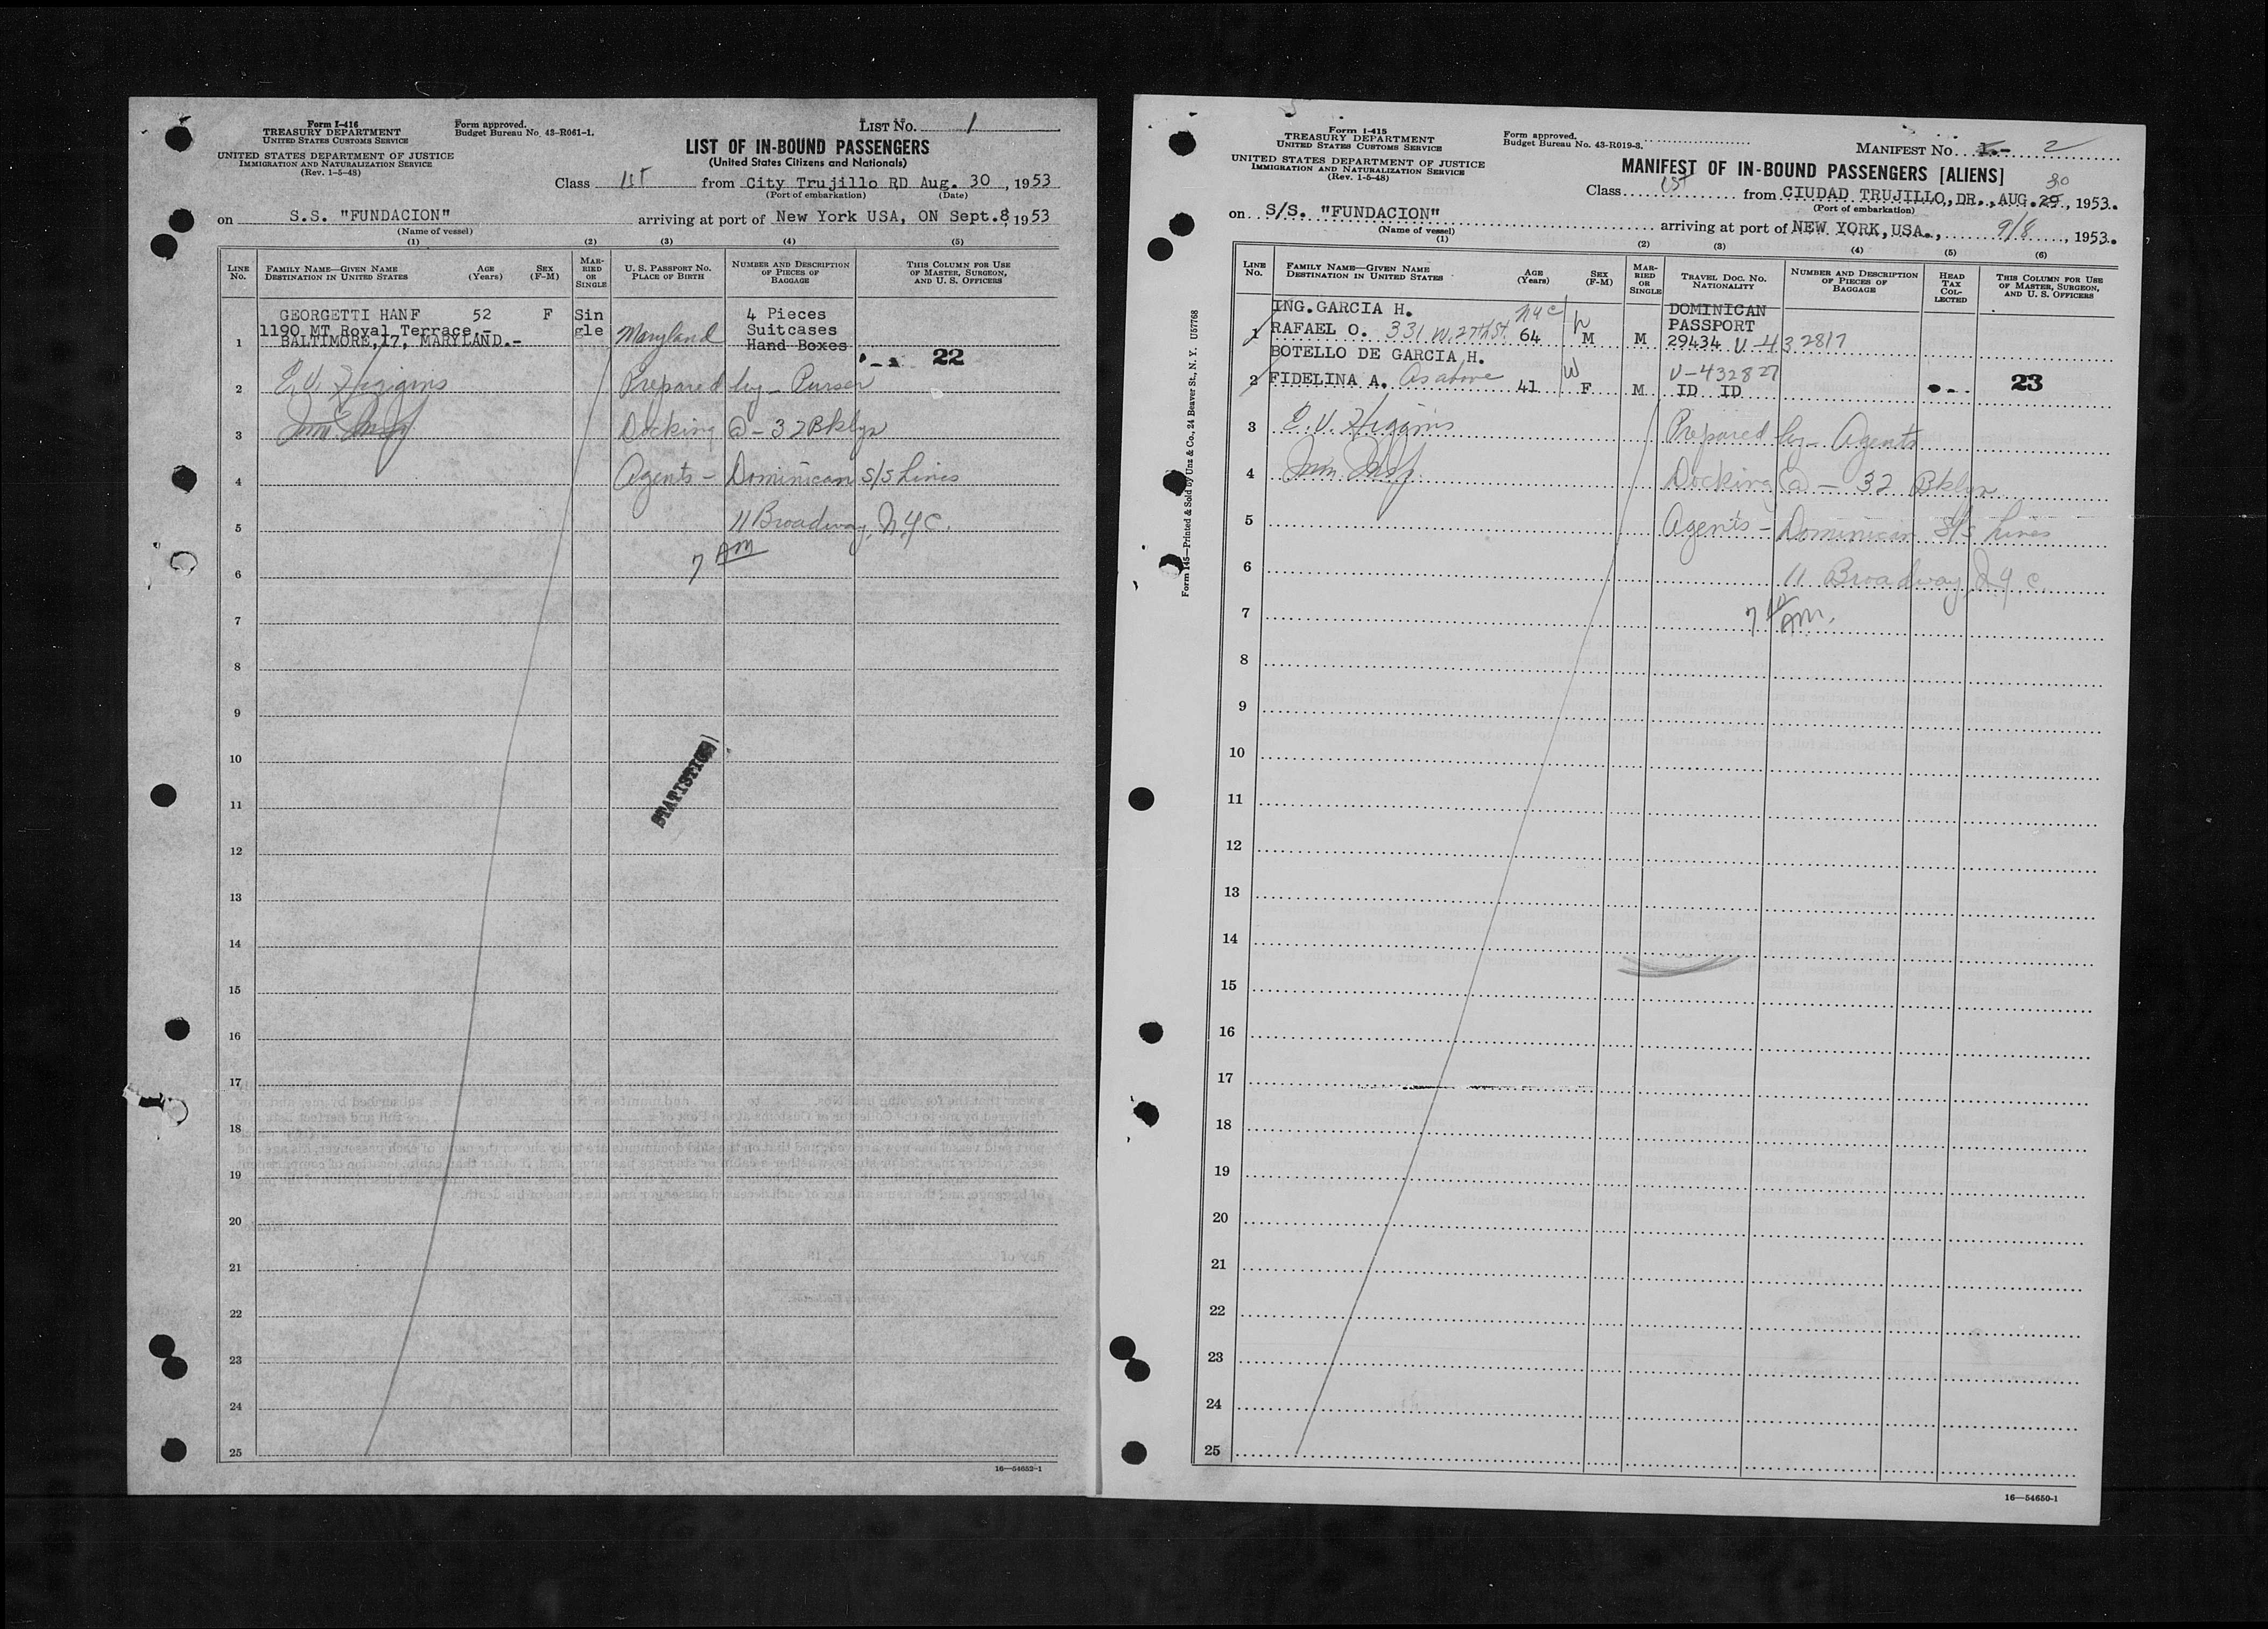 Form I-416
TREASURY DEPARTMENT
UNITED STATES CUSTOMS SERVICE
UNITED STATES DEPARTMENT OF JUSTICE
IMMIGRATION AND NATURALIZATION SERVICE
(Rev. 1-5-48)
Form approved.
Budget Bureau No. 43-R061-1.
LIST NO. 1
LIST OF IN-BOUND PASSENGERS
(United States Citizens and Nationals)
Class 1st from City Trujillo RD Aug. 30, 1953
(Port of embarkation) (Date)
on S.S. "FUNDACION" arriving at port of New York USA, ON Sept.8, 1953
(Name of vessel)
(1) (2) (3) (4) (5)
LINE NO. FAMILY NAME—GIVEN NAME DESTINATION IN UNITED STATES AGE (Years) SEX (F-M) MARRIED OR SINGLE U. S. PASSPORT NO. PLACE OF BIRTH NUMBER AND DESCRIPTION OF PIECES OF BAGGAGE THIS COLUMN FOR USE OF MASTER, SURGEON, AND U. S. OFFICERS
GEORGETTI HANF 52 F Sin gle 4 Pieces
1190 MT Royal Terrace.- Maryland Suitcases
1 BALTIMORE,17, MARYLAND.- Hand Boxes
22
2 E. V. Higgins Prepared by - Purser
3 Docking @ - 32 Bklyn
4 Agents - Dominican S/S Lines
5 11 Broadway, N.Y.C.
6 7 AM
7
8
9
10
11
STATISTICS
12
13
14
15
16
17
18
19
20
21
22
23
24
25
16—54652-1
Form I-415
TREASURY DEPARTMENT
UNITED STATES CUSTOMS SERVICE
UNITED STATES DEPARTMENT OF JUSTICE
IMMIGRATION AND NATURALIZATION SERVICE
(Rev. 1-5-48)
Form approved.
Budget Bureau No. 43-R019-3.
MANIFEST NO. 1.- 2
MANIFEST OF IN-BOUND PASSENGERS [ALIENS]
Class 1st from CIUDAD TRUJILLO, DR., AUG. 29, 30, 1953.
(Port of embarkation)
on S/S. "FUNDACION" arriving at port of NEW YORK, USA., 9/8, 1953.
(Name of vessel)
(1) (2) (3) (4) (5) (6)
LINE NO. FAMILY NAME—GIVEN NAME DESTINATION IN UNITED STATES AGE (Years) SEX (F-M) MARRIED OR SINGLE TRAVEL DOC. NO. NATIONALITY NUMBER AND DESCRIPTION OF PIECES OF BAGGAGE HEAD TAX COLLECTED THIS COLUMN FOR USE OF MASTER, SURGEON, AND U. S. OFFICERS
ING.GARCIA H. NYC DOMINICAN PASSPORT
1 RAFAEL O. 331 W. 27th St. 64 M M 29434 V-432817
BOTELLO DE GARCIA H. W V-432827
2 FIDELINA A. As above 41 F M ID ID 23
3 E. V. Higgins Prepared by - Agents
4 Docking @ - 32 Bklyn
5 Agents - Dominican S/S Lines
6 11 Broadway, N.Y.C.
7 7 AM.
8
9
10
11
12
13
14
15
16
17
18
19
20
21
22
23
24
25
16—54650-1
Form 145—Printed & Sold by Unz & Co., 24 Beaver St., N. Y. U57768